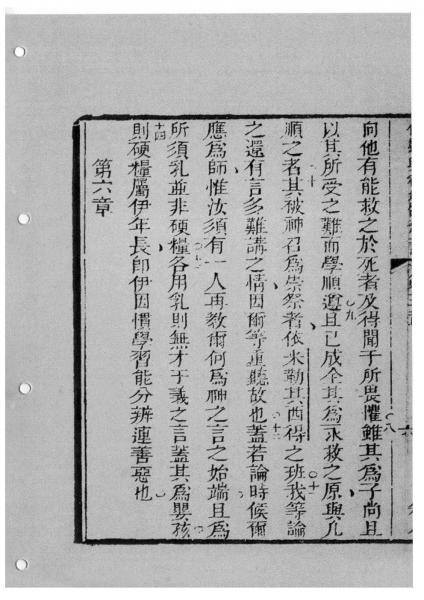 向他有能救之於死者及得聞于所畏懼八雖其爲子尚且
以其所受之難而學順遵九且已成全其爲永救之原與凡
順之者十其被神召爲崇祭者依米勒其西得之班十一我等論
之還有言多難講之情因爾等重聽故也十二蓋若論時候爾
應爲師惟汝須有一人再教爾何爲神之言之始端且爲
所須乳並非硬糧十三各用乳則無才于義之言蓋其爲嬰孩
十四則硬糧屬伊年長即伊因慣學習能分辨連善惡也
第六章